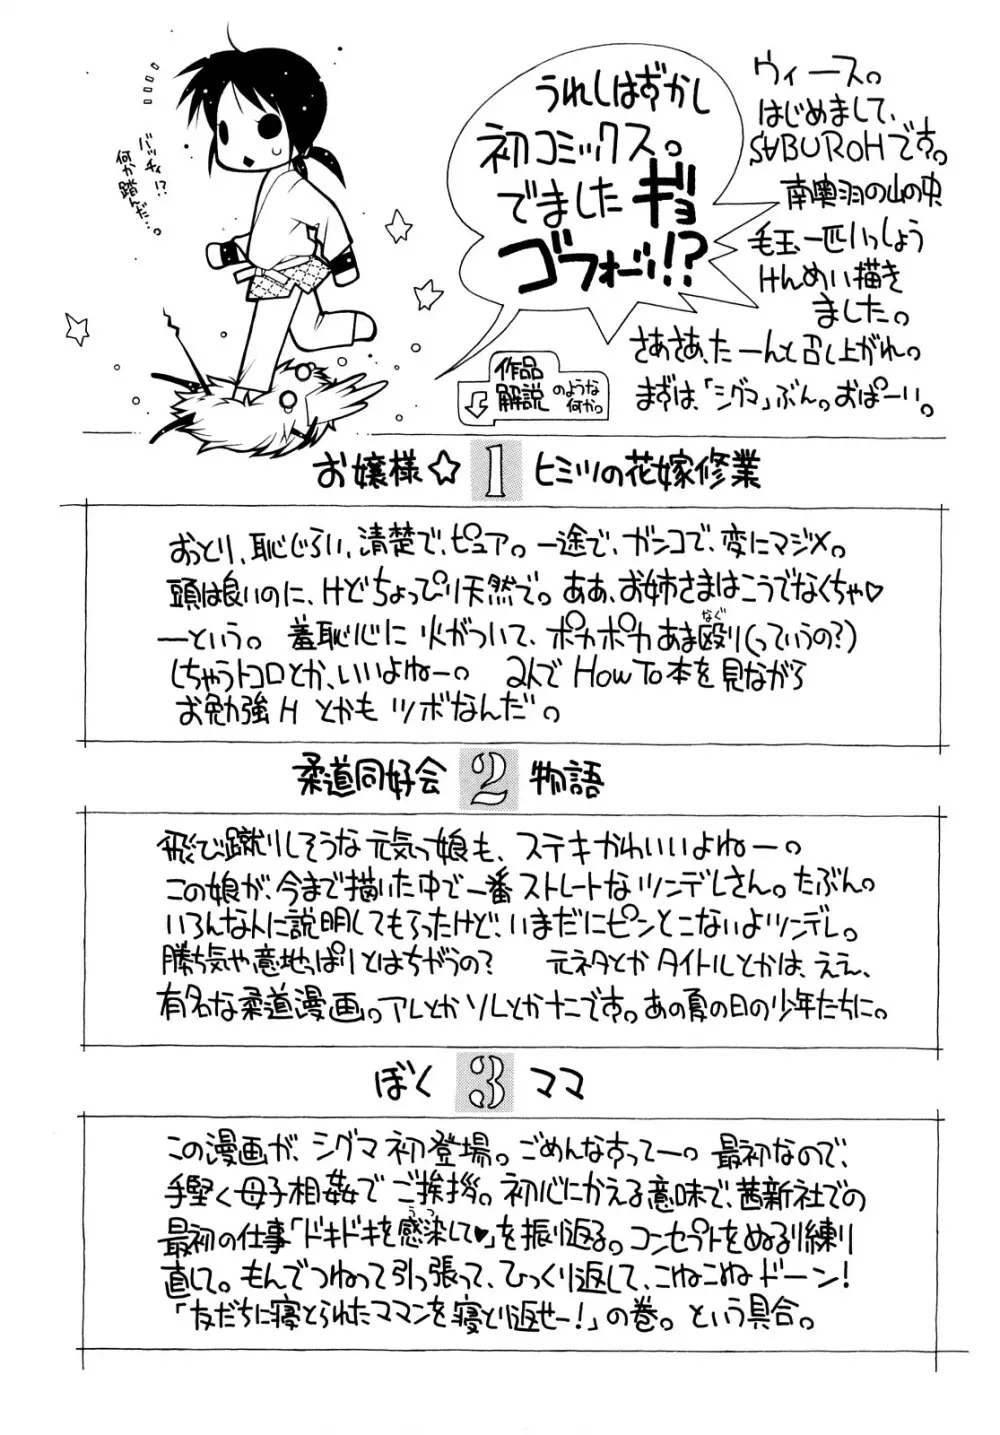 ウィース。
はじめまして、
SABUROHです。
南奥羽の山の中
毛玉一匹いっしょう
けんめい描き
ました。
さあさあ、たーんと召し上がれ。
まずは、「シグマ」ぶん。おぱーい。
うれしはずかし
初コミックス。
でました ギョ
ゴフォーッ!?
バッチィ!?
何か踏んだ…。
作品
解説
のような
何か。
お嬢様☆1 ヒミツの花嫁修業
おとり、恥じらい、清楚で、ピュア。一途で、ガンコで、変にマジメ。
頭は良いのに、けどちょっぴり天然で。ああ、お姉さまはこうでなくちゃ♥
―という。 羞恥心に火がついて、ポカポカあま殴り(っていうの?)
なぐ
しちゃうトコロとか、いいよねー。 2人でHowTo本を見ながら
お勉強H とかも ツボなんだ。
柔道同好会 2 物語
飛び蹴りしそうな元気っ娘も、ステキかわいいよねー。
この娘が、今まで描いた中で一番ストレートなツンデレさん。たぶん。
いろんな人に説明してもらったけど、いまだにピンとこないよツンデレ。
勝ち気や意地っぱりとはちがうの? 元ネタとかタイトルとかは、ええ、
有名な柔道漫画。アレとかソレとかナニです。あの夏の日の少年たちに。
ぼく 3 ママ
この漫画が、シグマ初登場。ごめんなすってー。最初なので、
手堅く母子相姦でご挨拶。初心にかえる意味で、茜新社での
最初の仕事「ドキドキを感染して♥」を振り返る。コンセプトをぬるり練り
うつ
直して。もんでつねって引っ張って、ひっくり返して、こねこねドーン!
「友だちに寝とられたママンを寝とり返せー!」の巻。という具合。